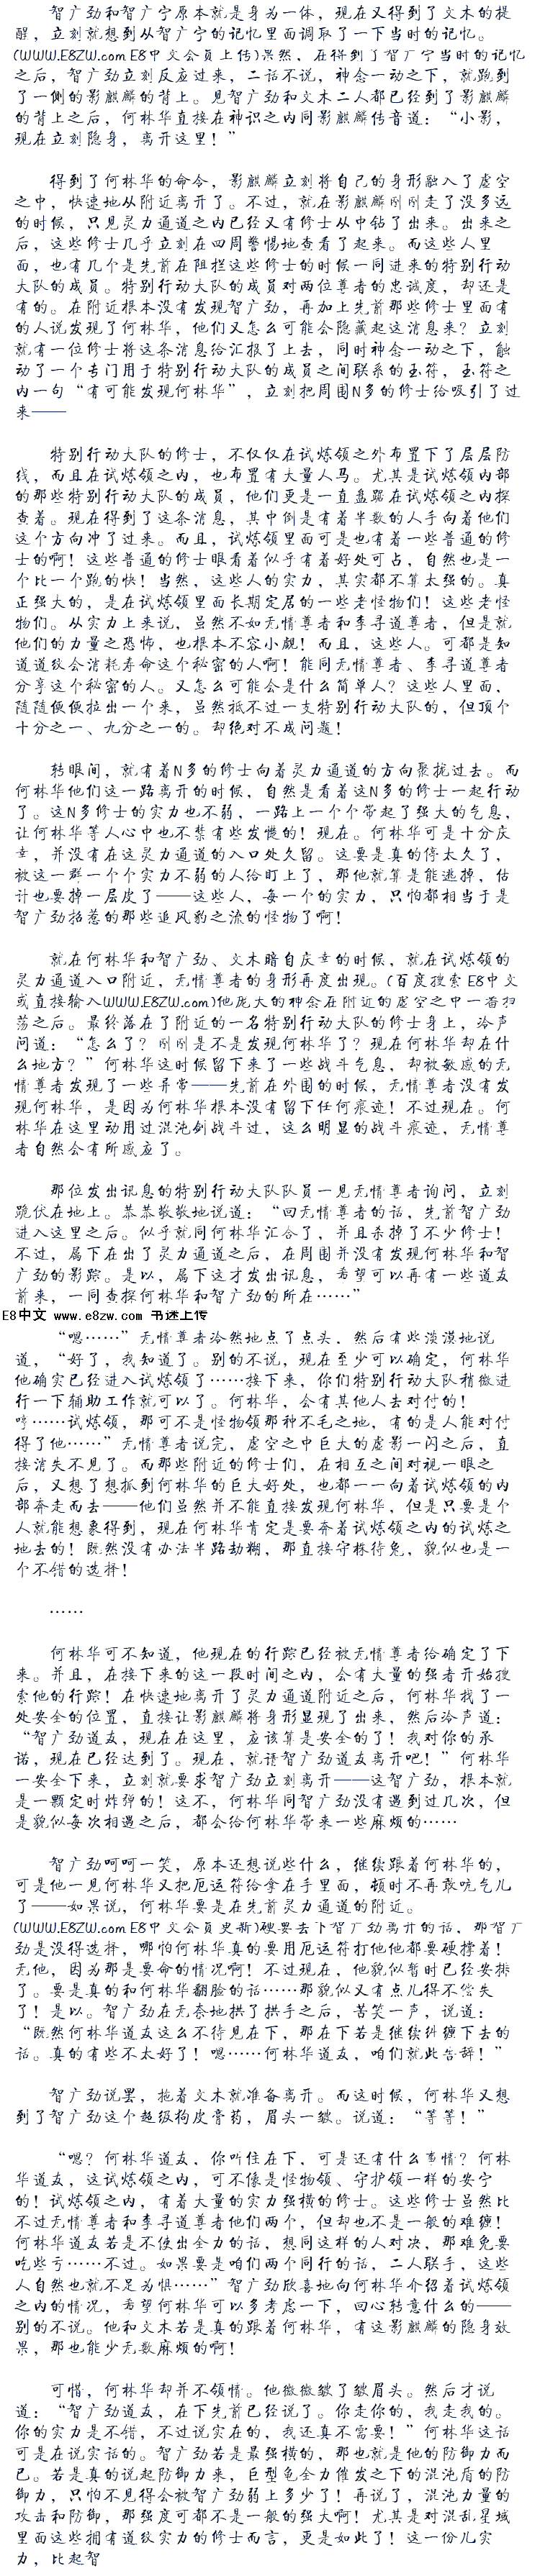 智广劲和智广宁原本就是身为一体，现在又得到了文木的提
醒，立刻就想到从智广宁的记忆里面调取了一下当时的记忆。
(WWW.E8ZW.com E8中文会员上传)果然，在得到了智广宁当时的记忆
之后，智广劲立刻反应过来，二话不说，神念一动之下，就跑到
了一侧的影麒麟的背上。见智广劲和文木二人都已经到了影麒麟
的背上之后，何林华直接在神识之内同影麒麟传音道：“小影，
现在立刻隐身，离开这里！”
得到了何林华的命令，影麒麟立刻将自己的身形融入了虚空
之中，快速地从附近离开了。不过，就在影麒麟刚刚走了没多远
的时候，只见灵力通道之内已经又有修士从中钻了出来。出来之
后，这些修士几乎立刻在四周警惕地查看了起来。而这些人里
面，也有几个是先前在阻拦这些修士的时候一同进来的特别行动
大队的成员。特别行动大队的成员对两位尊者的忠诚度，却还是
有的。在附近根本没有发现智广劲，再加上先前那些修士里面有
的人说发现了何林华，他们又怎么可能会隐藏起这消息来？立刻
就有一位修士将这条消息给汇报了上去，同时神念一动之下，触
动了一个专门用于特别行动大队的成员之间联系的玉符，玉符之
内一句“有可能发现何林华”，立刻把周围N多的修士给吸引了过
来——
特别行动大队的修士，不仅仅在试炼领之外布置下了层层防
线，而且在试炼领之内，也布置有大量人马。尤其是试炼领内部
的那些特别行动大队的成员，他们更是一直盘踞在试炼领之内探
查着。现在得到了这条消息，其中倒是有着半数的人手向着他们
这个方向冲了过来。而且，试炼领里面可是也有着一些普通的修
士的啊！这些普通的修士眼看着似乎有着好处可占，自然也是一
个比一个跑的快！当然，这些人的实力，其实都不算太强的。真
正强大的，是在试炼领里面长期定居的一些老怪物们！这些老怪
物们。从实力上来说，虽然不如无情尊者和李寻道尊者，但是就
他们的力量之恐怖，也根本不容小觑！而且，这些人。可都是知
道道纹会消耗寿命这个秘密的人啊！能同无情尊者、李寻道尊者
分享这个秘密的人。又怎么可能会是什么简单人？这些人里面，
随随便便拉出一个来，虽然抵不过一支特别行动大队的，但顶个
十分之一、九分之一的。却绝对不成问题！
转眼间，就有着N多的修士向着灵力通道的方向聚拢过去。而
何林华他们这一路离开的时候，自然是看着这N多的修士一起行动
了。这N多修士的实力也不弱，一路上一个个带起了强大的气息，
让何林华等人心中也不禁有些发慌的！现在。何林华可是十分庆
幸，并没有在这灵力通道的入口处久留。这要是真的停太久了，
被这一群一个个实力不弱的人给盯上了，那他就算是能逃掉，估
计也要掉一层皮了——这些人，每一个的实力，只怕都相当于是
智广劲招惹的那些追风豹之流的怪物了啊！
就在何林华和智广劲、文木暗自庆幸的时候，就在试炼领的
灵力通道入口附近，无情尊者的身形再度出现。(百度搜索 E8中文
或直接输入WWW.E8ZW.com)他庞大的神念在附近的虚空之中一番扫
荡之后。最终落在了附近的一名特别行动大队的修士身上，冷声
问道：“怎么了？刚刚是不是发现何林华了？现在何林华却在什
么地方？”何林华这时候留下来了一些战斗气息，却被敏感的无
情尊者发现了一些异常——先前在外围的时候，无情尊者没有发
现何林华，是因为何林华根本没有留下任何痕迹！不过现在。何
林华在这里动用过混沌剑战斗过，这么明显的战斗痕迹，无情尊
者自然会有所感应了。
那位发出讯息的特别行动大队队员一见无情尊者询问，立刻
跪伏在地上。恭恭敬敬地说道：“回无情尊者的话，先前智广劲
进入这里之后。似乎就同何林华汇合了，并且杀掉了不少修士！
不过，属下在出了灵力通道之后，在周围并没有发现何林华和智
广劲的影踪。是以，属下这才发出讯息，希望可以再有一些道友
前来，一同查探何林华和智广劲的所在……”
E8中文 www.e8zw.com 书迷上传
“嗯……”无情尊者冷然地点了点头，然后有些淡漠地说
道，“好了，我知道了。别的不说，现在至少可以确定，何林华
他确实已经进入试炼领了……接下来，你们特别行动大队稍微进
行一下辅助工作就可以了。何林华，会有其他人去对付的！
哼……试炼领，那可不是怪物领那种不毛之地，有的是人能对付
得了他……”无情尊者说完，虚空之中巨大的虚影一闪之后，直
接消失不见了。而那些附近的修士们，在相互之间对视一眼之
后，又想了想抓到何林华的巨大好处，也都一一向着试炼领的内
部奔走而去——他们虽然并不能直接发现何林华，但是只要是个
人就能想象得到，现在何林华肯定是要奔着试炼领之内的试炼之
地去的！既然没有办法半路劫糊，那直接守株待兔，貌似也是一
个不错的选择！
……
何林华可不知道，他现在的行踪已经被无情尊者给确定了下
来。并且，在接下来的这一段时间之内，会有大量的强者开始搜
索他的行踪！在快速地离开了灵力通道附近之后，何林华找了一
处安全的位置，直接让影麒麟将身形显现了出来，然后冷声道：
“智广劲道友，现在在这里，应该算是安全的了！我对你的承
诺，现在已经达到了。现在，就请智广劲道友离开吧！”何林华
一安全下来，立刻就要求智广劲立刻离开——这智广劲，根本就
是一颗定时炸弹的！这不，何林华同智广劲没有遇到过几次，但
是貌似每次相遇之后，都会给何林华带来一些麻烦的……
智广劲呵呵一笑，原本还想说些什么，继续跟着何林华的，
可是他一见何林华又把厄运符给拿在手里面，顿时不再敢吭气儿
了——如果说，何林华要是在先前灵力通道的附近。
(WWW.E8ZW.com E8中文会员更新)硬要去下智广劲离开的话，那智广
劲是没得选择，哪怕何林华真的要用厄运符打他他都要硬撑着！
无他，因为那是要命的情况啊！不过现在，他貌似暂时已经安排
了。要是真的和何林华翻脸的话……那貌似又有点儿得不偿失
了！是以。智广劲在无奈地拱了拱手之后，苦笑一声，说道：
“既然何林华道友这么不待见在下，那在下若是继续纠缠下去的
话。真的有些不太好了！嗯……何林华道友，咱们就此告辞！”
智广劲说罢，拖着文木就准备离开。而这时候，何林华又想
到了智广劲这个超级狗皮膏药，眉头一皱。说道：“等等！”
“嗯？何林华道友，你听住在下，可是还有什么事情？何林
华道友，这试炼领之内，可不像是怪物领、守护领一样的安宁
的！试炼领之内，有着大量的实力强横的修士。这些修士虽然比
不过无情尊者和李寻道尊者他们两个，但却也不是一般的难缠！
何林华道友若是不使出全力的话，想同这样的人对决，那难免要
吃些亏……不过。如果要是咱们两个同行的话，二人联手，这些
人自然也就不足为惧……”智广劲欣喜地向何林华介绍着试炼领
之内的情况，希望何林华可以多考虑一下，回心转意什么的——
别的不说。他和文木若是真的跟着何林华，有这影麒麟的隐身效
果，那也能少无数麻烦的啊！
可惜，何林华却并不领情。他微微皱了皱眉头。然后才说
道：“智广劲道友，在下先前已经说了。你走你的，我走我的。
你的实力是不错，不过说实在的，我还真不需要！”何林华这话
可是在说实话的。智广劲若是最强横的，那也就是他的防御力而
已。若是真的说起防御力来，巨型龟全力催发之下的混沌盾的防
御力，只怕不见得会被智广劲弱上多少了！再说了，混沌力量的
攻击和防御，那强度可都不是一般的强大啊！尤其是对混乱星域
里面这些拥有道纹实力的修士而言，更是如此了！这一份儿实
力，比起智